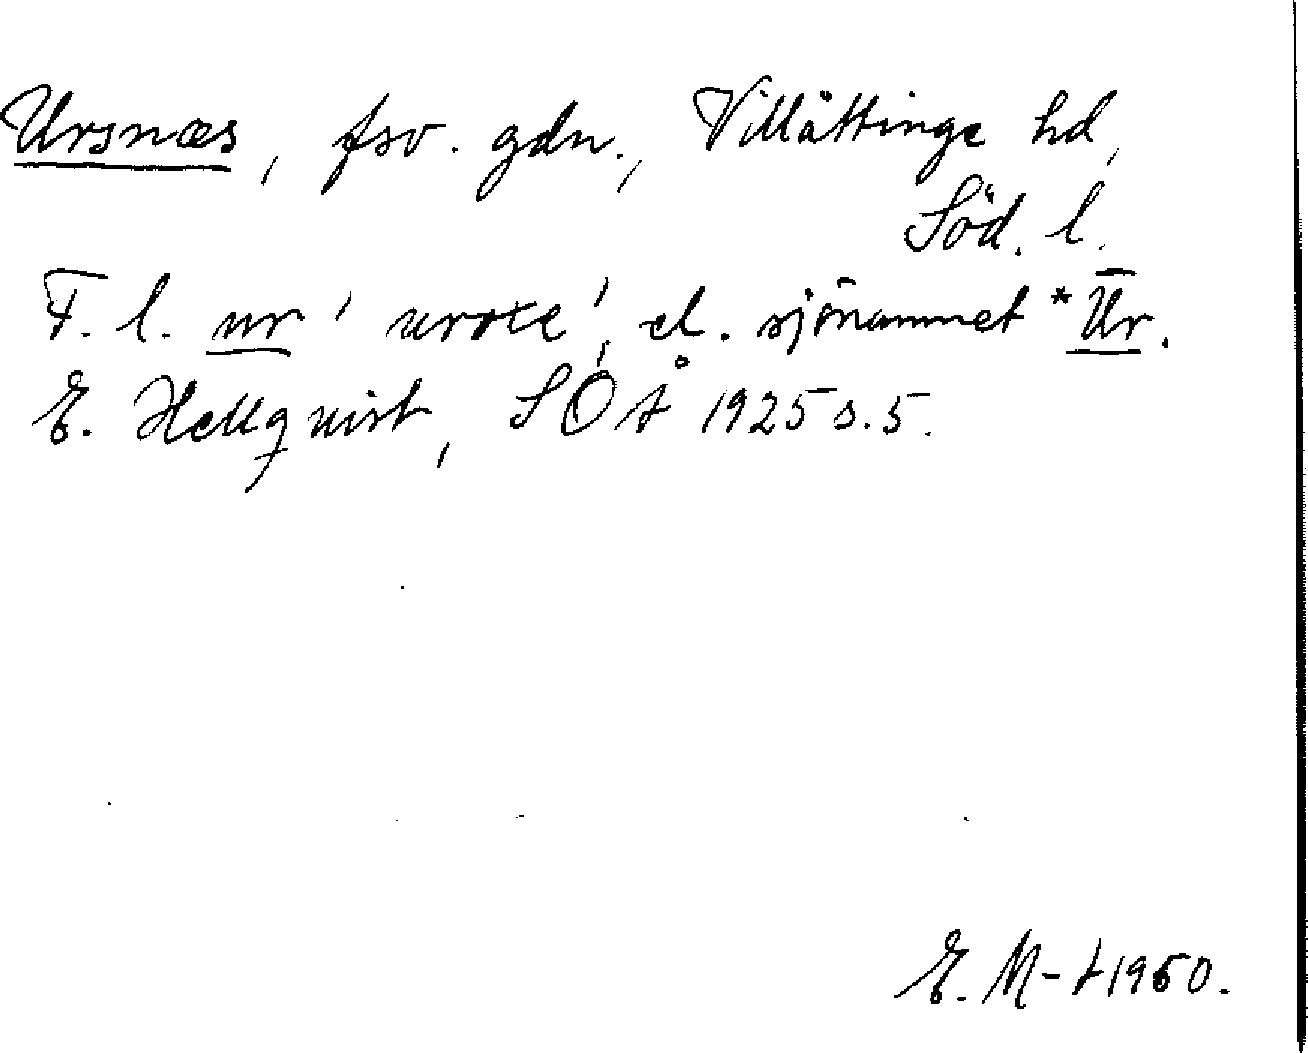 Ursnæs, fsv. gdn., Villåttinge hd,
Söd. l.
F. l. ur 'uroxe', el. sjönamnet *Ūr.
E. Hellquist, SOÅ 1925 s. 5.
E. M-t 1960.